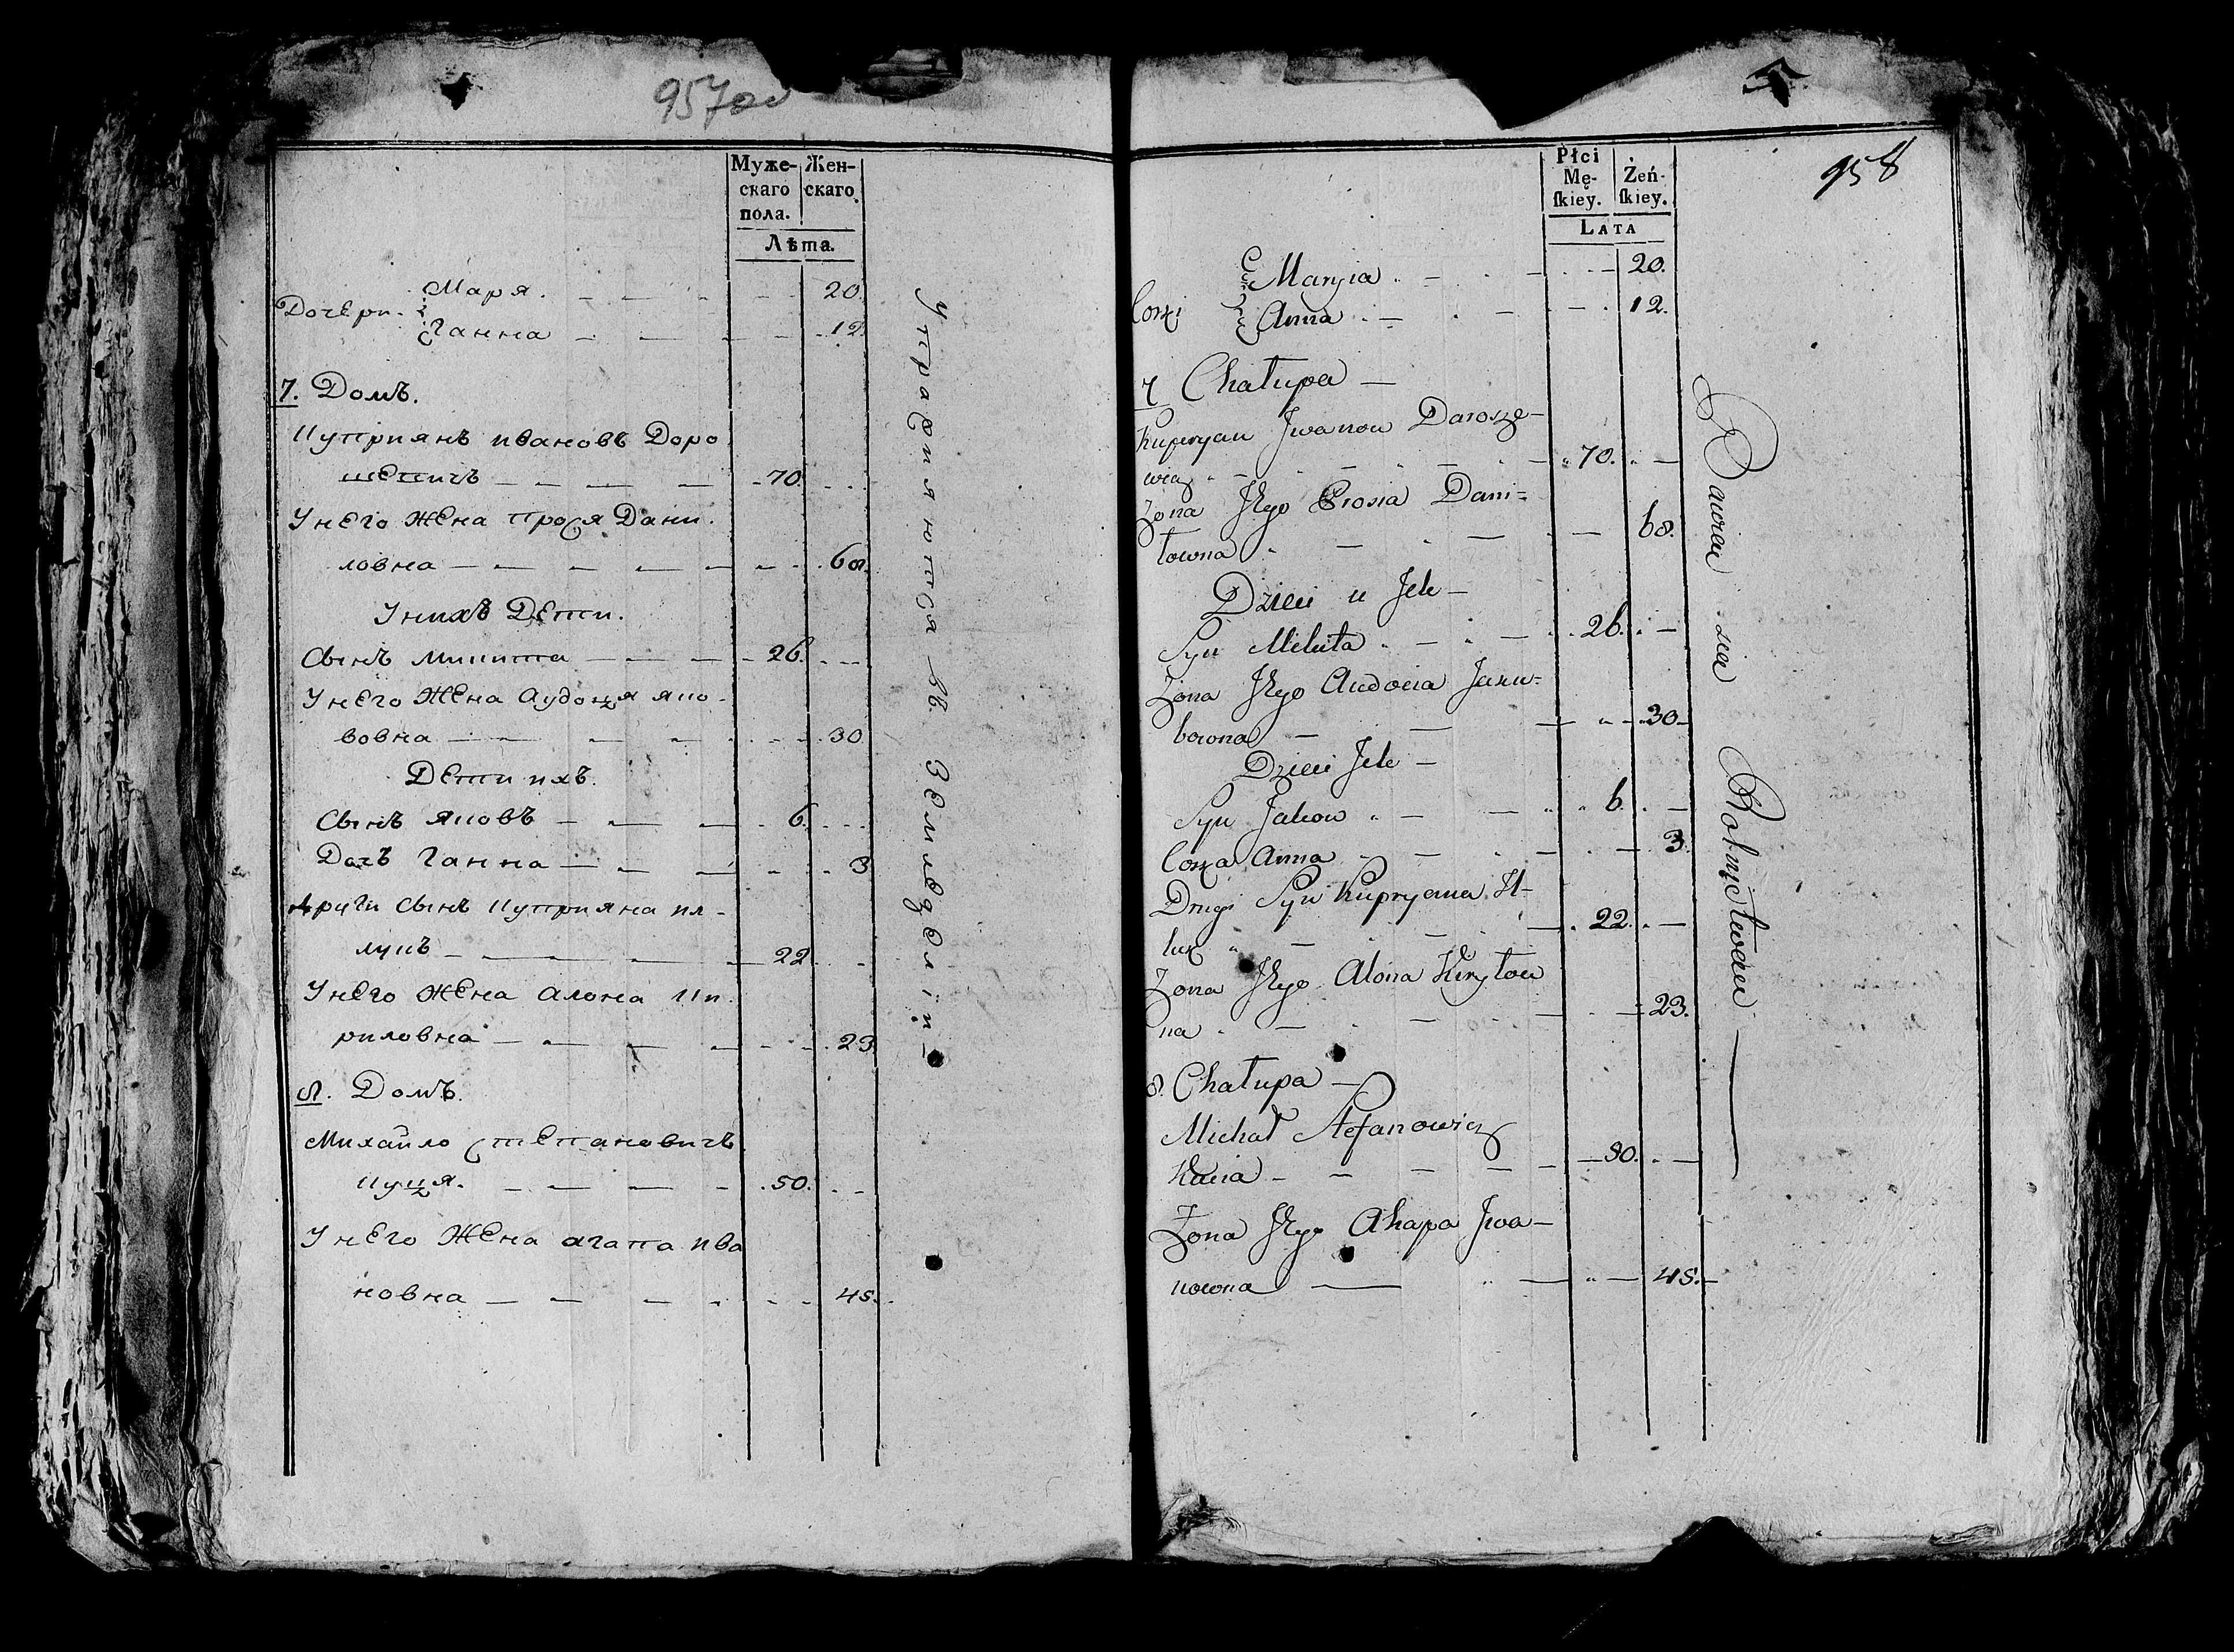 957об
Муже- Жен-
скаго скаго.
пола.
Лѣта.
Маря. 20.
Дочери.
Ганна 12.
7. Домъ.
Куприянъ ивановъ Доро
шевичъ 70.
Унего жена прося Дани.
ловна 68.
Унихъ Дети.
Сынъ микита 26.
Унего жена аудоця яко-
вовна 30
Дети ихъ.
Сынъ яковъ 6.
Дочъ Ганна 3
други сынъ куприяна ил-
лукъ 22
Унего жена алона Ки.
риловна 23.
8. Домъ.
Михайло степановичъ
куця. 50.
Унего жена агапа ива
новна 45.
Упражняются въ земледеліи
958
Płci
Mę- Żeń-
ſkiey. ſkiey.
LATA
Maryia 20.
Corki
Anna 12.
7 Chałupa
Kupryan Jwanow Darosze-
wicz 70.
Żona Jego Prosia Dani=
łowna 68.
Dzieci u Jch
Syn Mikita 26.
Żona Jego Audocia Jaku=
bowna 30
Dzieci Jch
Syn Jakow 6.
Corka Anna 3.
Drugi Syn Kupryana Il-
luk 22.
Żona Jego Alona Kiryłow
na 23.
8. Chałupa
Michał Stefanowicz
Kucia 50.
Żona Jego Ahapa Jwa-
nowna 45.
Bawią się Rolnictwem